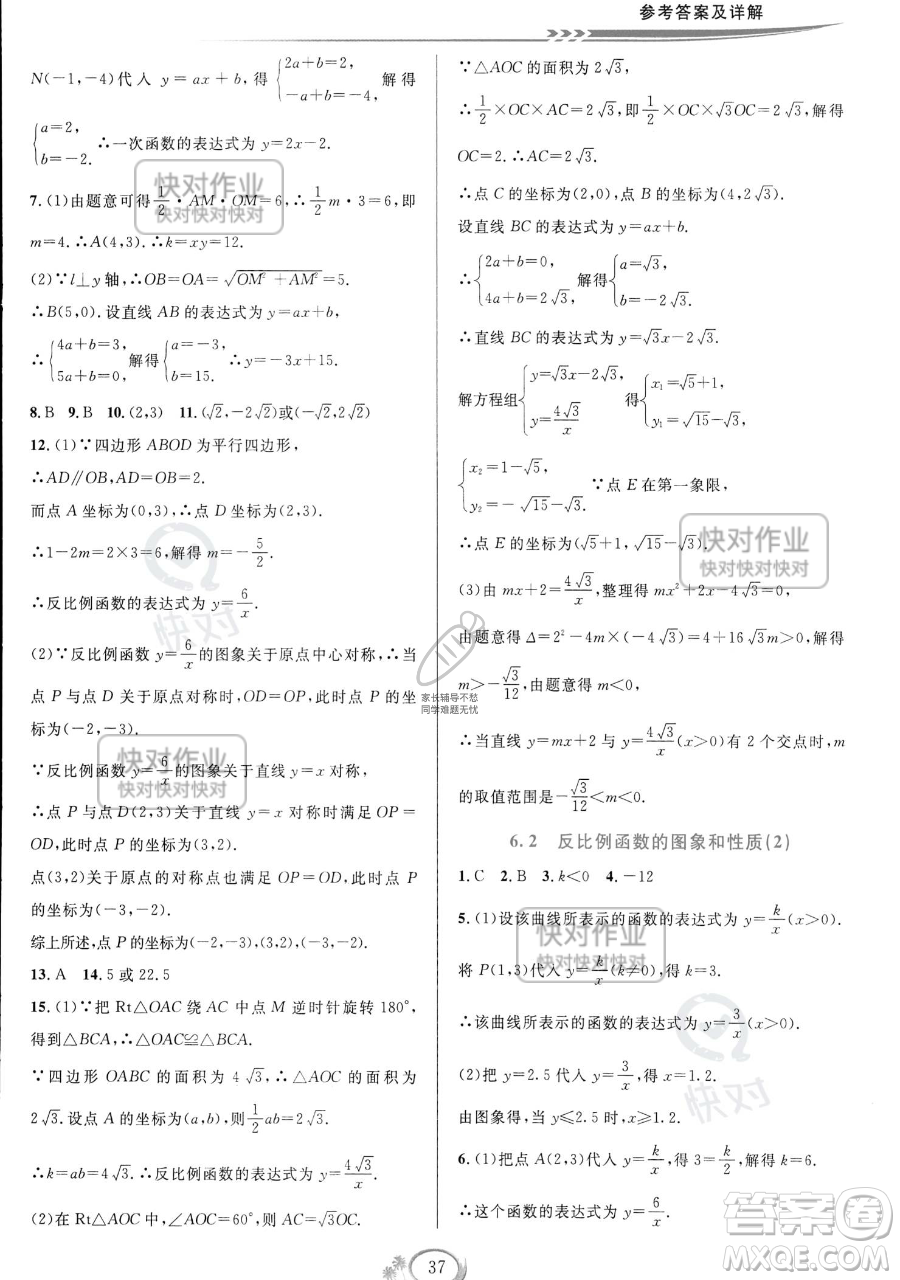 参考答案及详解
N(-1,-4)代入 y=ax+b,得{2a+b=2, -a+b=-4, 解得
{a=2, b=-2. ∴一次函数的表达式为 y=2x-2.
7.(1)由题意可得1/2·AM·OM=6,∴1/2 m·3=6,即
m=4.∴A(4,3).∴k=xy=12.
(2)∵l⊥y 轴,∴OB=OA=√(OM²+AM²)=5.
∴B(5,0).设直线 AB 的表达式为 y=ax+b,
∴{4a+b=3, 5a+b=0. 解得{a=-3, b=15. ∴y=-3x+15.
8.B 9.B 10.(2,3) 11.(√2,-2√2)或(-√2,2√2)
12.(1)∵四边形 ABOD 为平行四边形,
∴AD∥OB,AD=OB=2.
而点 A 坐标为(0,3),∴点 D 坐标为(2,3).
∴1-2m=2×3=6,解得 m=-5/2.
∴反比例函数的表达式为 y=6/x.
(2)∵反比例函数 y=6/x的图象关于原点中心对称,∴当
点 P 与点 D 关于原点对称时,OD=OP,此时点 P 的坐
标为(-2,-3).
∵反比例函数 y=6/x的图象关于直线 y=x 对称,
∴点 P 与点 D(2,3)关于直线 y=x 对称时满足 OP=
OD,此时点 P 的坐标为(3,2).
点(3,2)关于原点的对称点也满足 OP=OD=OD,此时点 P
的坐标为(-3,-2).
综上所述,点 P 的坐标为(-2,-3),(3,2),(-3,-2).
13.A 14.5 或 22.5
15.(1)∵把 Rt△OAC 绕 AC 中点 M 逆时针旋转 180°,
得到△BCA,∴△OAC≌△BCA.
∵四边形 OABC 的面积为 4√3,∴△AOC 的面积为
2√3.设点 A 的坐标为(a,b),则1/2 ab=2√3.
∴k=ab=4√3.∴反比例函数的表达式为 y=4√3/x.
(2)在 Rt△AOC 中,∠AOC=60°,则 AC=√3OC.
∵△AOC 的面积为 2√3,
∴1/2×OC×AC=2√3,即1/2×OC×√3OC=2√3,解得
OC=2.∴AC=2√3.
∴点 C 的坐标为(2,0),点 B 的坐标为(4,2√3).
设直线 BC 的表达式为 y=ax+b,
∴{2a+b=0, 4a+b=2√3. 解得{a=√3, b=-2√3.
∴直线 BC 的表达式为 y=√3x-2√3.
解方程组{y=√3x-2√3, y=4√3/x 得{x₁=√5+1, y₁=√15-√3,
{x₂=1-√5, y₂=-√15-√3. ∵点 E 在第一象限,
∴点 E 的坐标为(√5+1,√15-√3).
(3)由 mx+2=4√3/x,整理得 mx²+2x-4√3=0,
由题意得 Δ=2²-4m×(-4√3)=4+16√3m>0,解得
m>-√3/12,由题意得 m<0,
∴当直线 y=mx+2 与 y=4√3/x(x>0)有 2 个交点时,m
的取值范围是-√3/12<m<0.
6.2 反比例函数的图象和性质(2)
1.C 2.B 3.k<0 4.-12
5.(1)设该曲线所表示的函数的表达式为 y=k/x(x>0).
将 P(1,3)代入 y=k/x(k≠0),得 k=3.
∴该曲线所表示的函数的表达式为 y=3/x(x>0).
(2)把 y=2.5 代入,得 x=1.2.
由图象得,当 y≤2.5 时,x≥1.2.
6.(1)把点 A(2,3)代入 y=k/x,得 3=k/2,解得 k=6.
∴这个函数的表达式为 y=6/x.
37
快对作业
快对快对快对
快对作业
快对快对快对
快对作业
快对快对快对
快对作业
快对快对快对
快对
快对
家长辅导不愁
同学难题无忧
答案圈
MXQE.COM